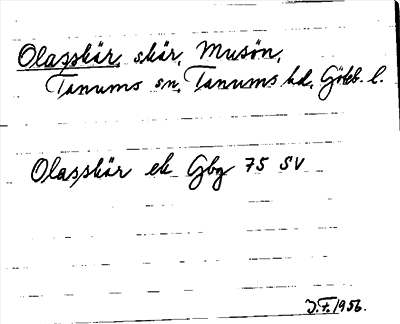 Olasskär, skär, Musön,
Tanums sn, Tanums hd, Götеb. l.
Olasskär ek Gbg 75 SV
J.F. 1956.